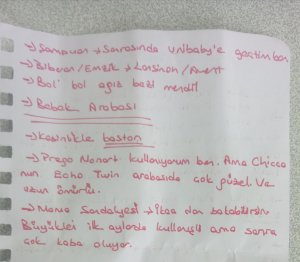 → Samavan → Sonrasında unibaby'e geçtim ben
→ Biberon / Emzik → Lansinoh / Avent
→ Bol bol ağız bezi mendil
→ Bebek Arabası
→ Kesinlikle baston
→ Prego Nonart kullanıyorum ben. Ama Chicco
nun Echo Twin arabasıda çok güzel. Ve
uzun ömürlü.
→ Mama Sandalyesi → ikea dan bakabilirsin
Büyükler ilk aylarda kullanışlı ama sonra
çok kaba oluyor.